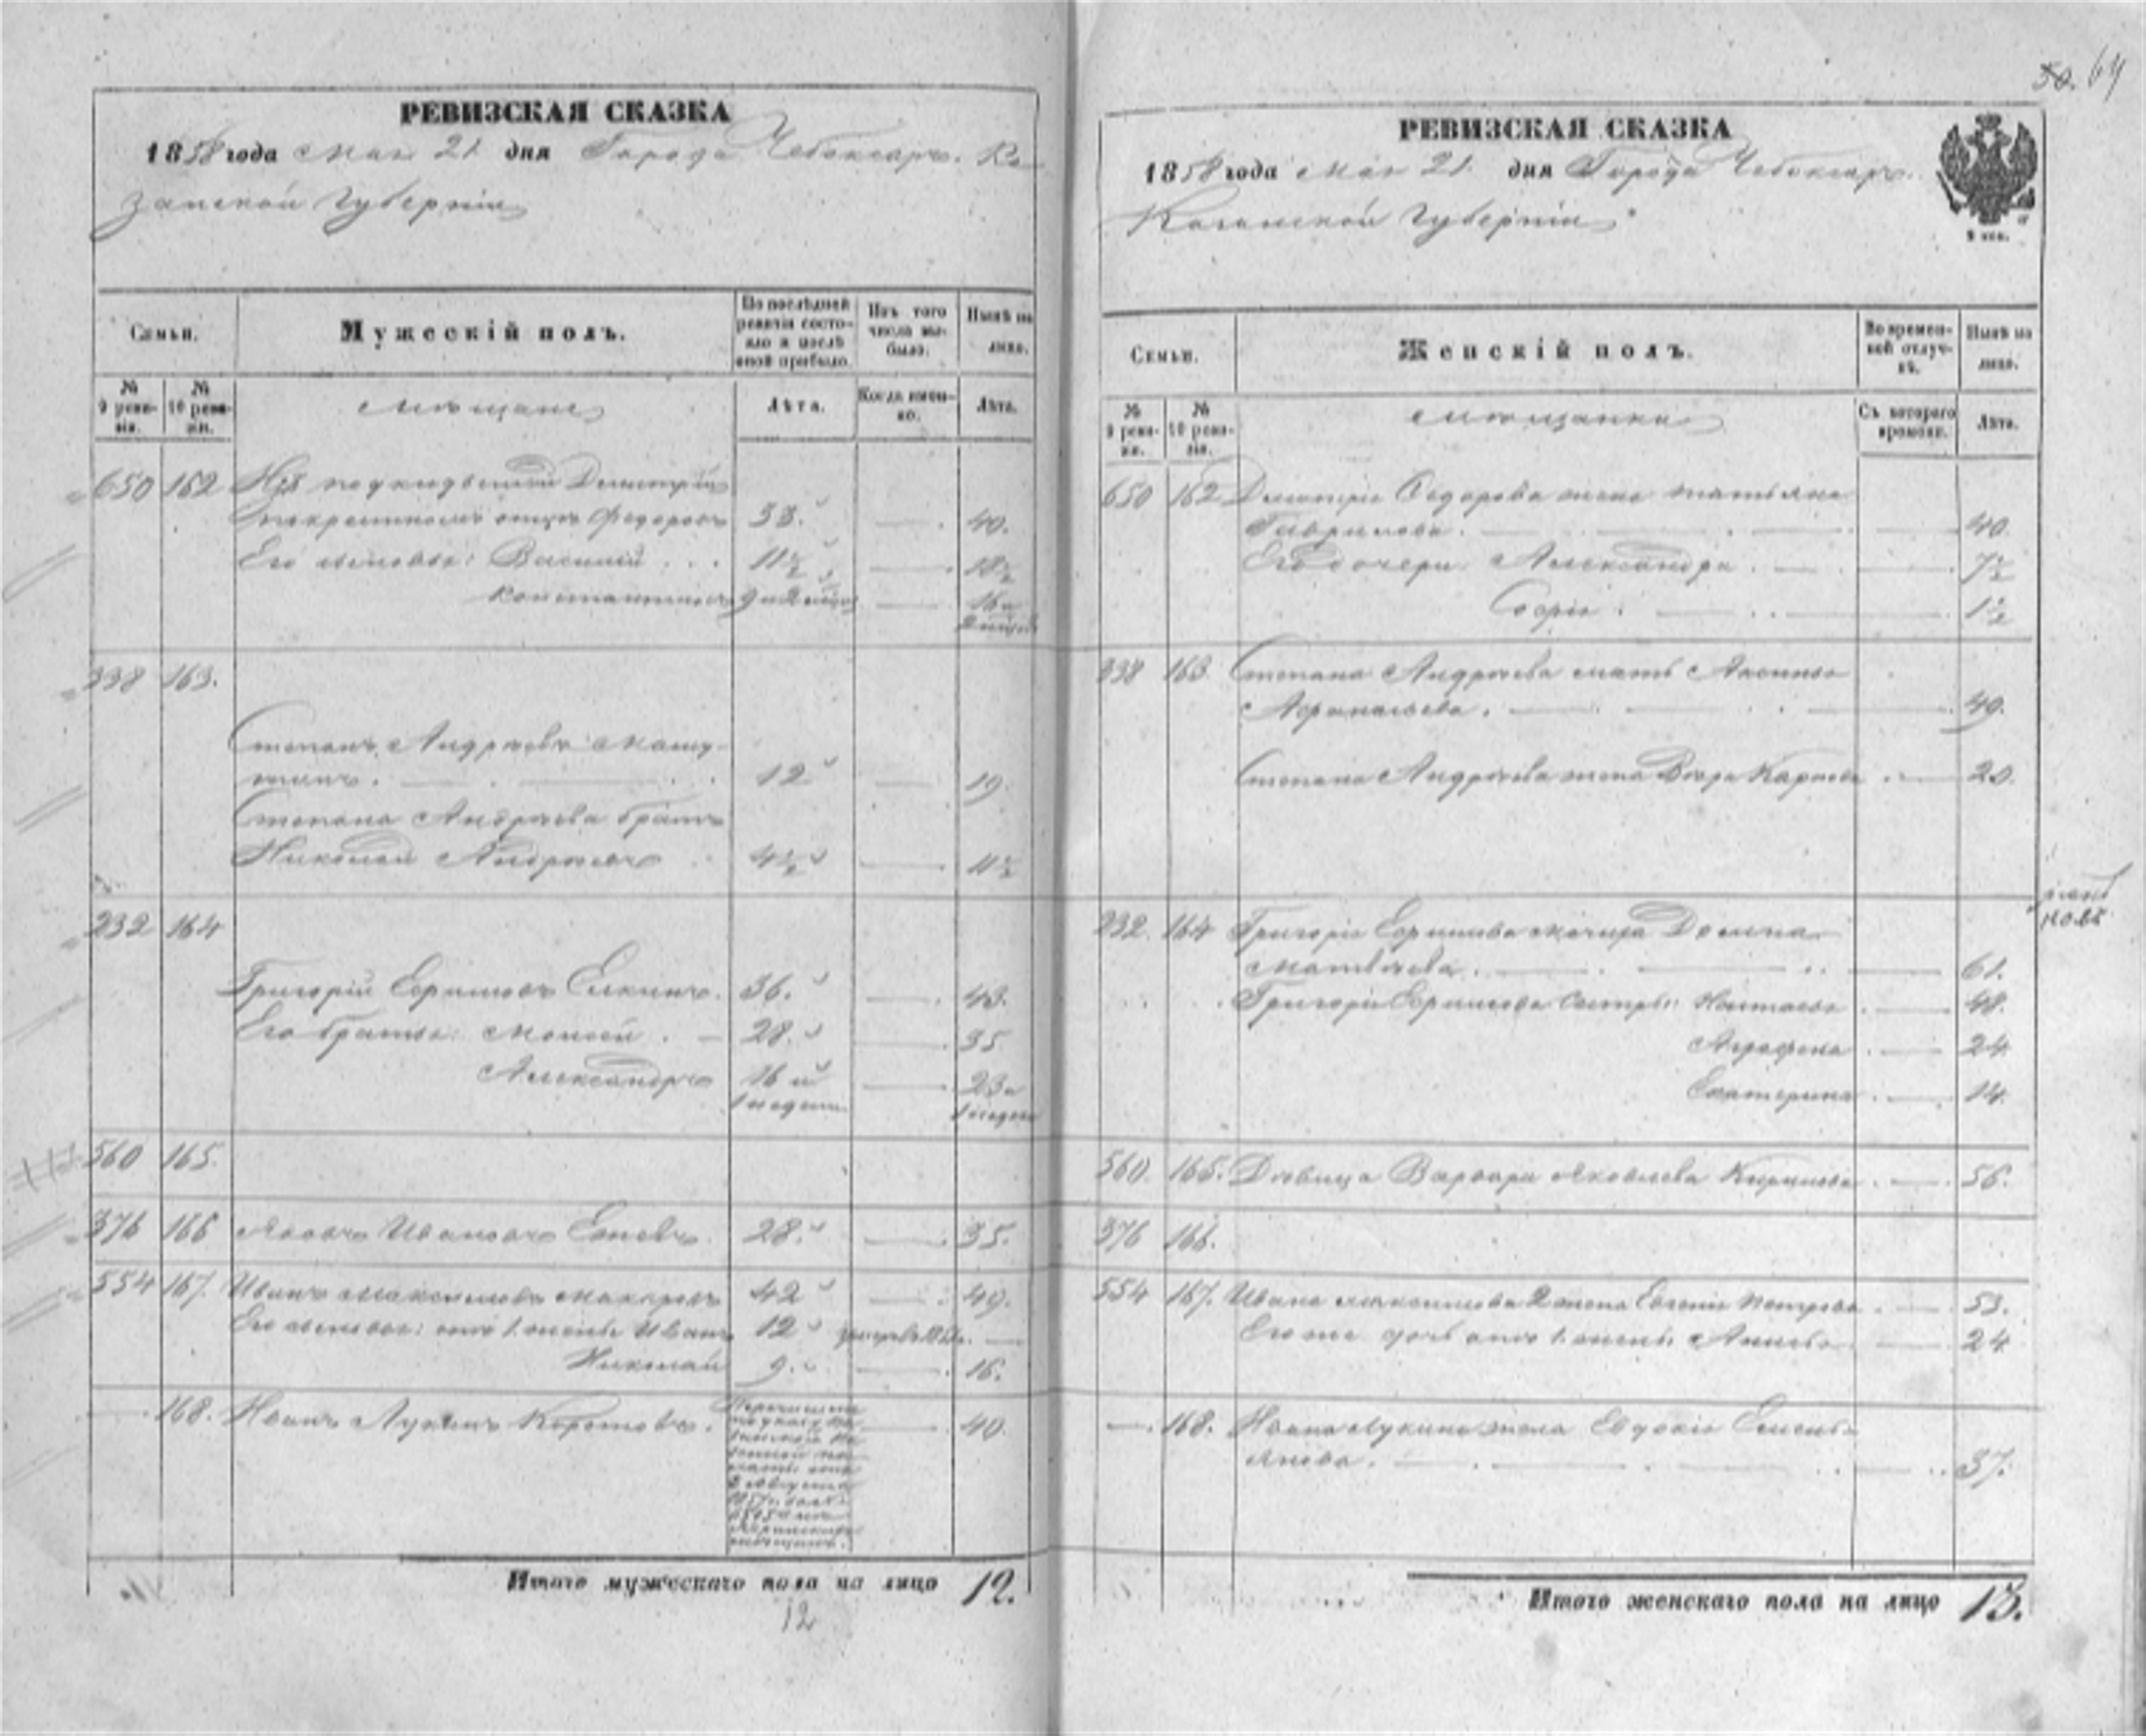 РЕВИЗСКАЯ СКАЗКА
1858 года мая 21 дня Города Чебоксаръ. Ка
занской губерніи
Семьи.
Мужескій полъ.
По послѣдней ревизіи состояло и послѣ оной прибыло.
Изъ того числа выбыло.
Нынѣ на лицо.
№ 9 ревизіи.
№ 10 ревизіи.
мѣщане
Лѣта.
Когда именно.
Лѣта.
650 162 Изъ Дмитрій
отцу Федоровъ 33. 40.
Его сыновья: Василій 11½ 18½
Константинъ 9 и 2 16 и
338 163.
Степанъ Андрѣевъ
12 19
Степана Андрѣева братъ
Николай Андрѣевъ 4½ 11½
232 164
Григорій Ефимовъ Елкинъ. 36. 43.
Его братья: Моисей. 28. 35
Александръ 16 и 23 и
1 недели 1 недели
560 165.
376 166 Яковъ Ивановъ 28. 35.
554 167. Иванъ Максимовъ Макаровъ 42 49.
Его сыновья: отъ 1 жены Иванъ 12
Николай 9. 16.
168. Иванъ Лукинъ Коротовъ. 40.
Итого мужескаго пола на лицо 12.
12
50. 64
РЕВИЗСКАЯ СКАЗКА
1858 года мая 21. дня Города Чебоксаръ.
Казанской губерніи
Семьи.
Женскій полъ.
Во временной отлучкѣ.
Нынѣ на лицо.
№ 9 ревизіи.
№ 10 ревизіи.
мѣщанки
Съ котораго времени.
Лѣта.
650 162 Дмитрія Федорова жена Татьяна
Гаврилова. 40.
Его дочери: Александра. 7½
Софія. 1½
338 163 Степана Андрѣева мать Аксинья
Афанасьева. 49.
Степана Андрѣева жена Вѣра Карпова 20.
232. 164 Григорія Ефимова мачиха Домна
Матвѣева. 61.
Григорія Ефимова сестры: Настасья 48.
Аграфена 24
Екатерина 14.
560. 165. Дѣвица Варвара Яковлева 56.
376 166.
554 167. Ивана Максимова 2 жена Евгенія Петрова 53.
Его же дочь отъ 1 жены 24
168. Ивана Лукина жена Евдокія Емель
янова. 37.
Итого женскаго пола на лицо 13.